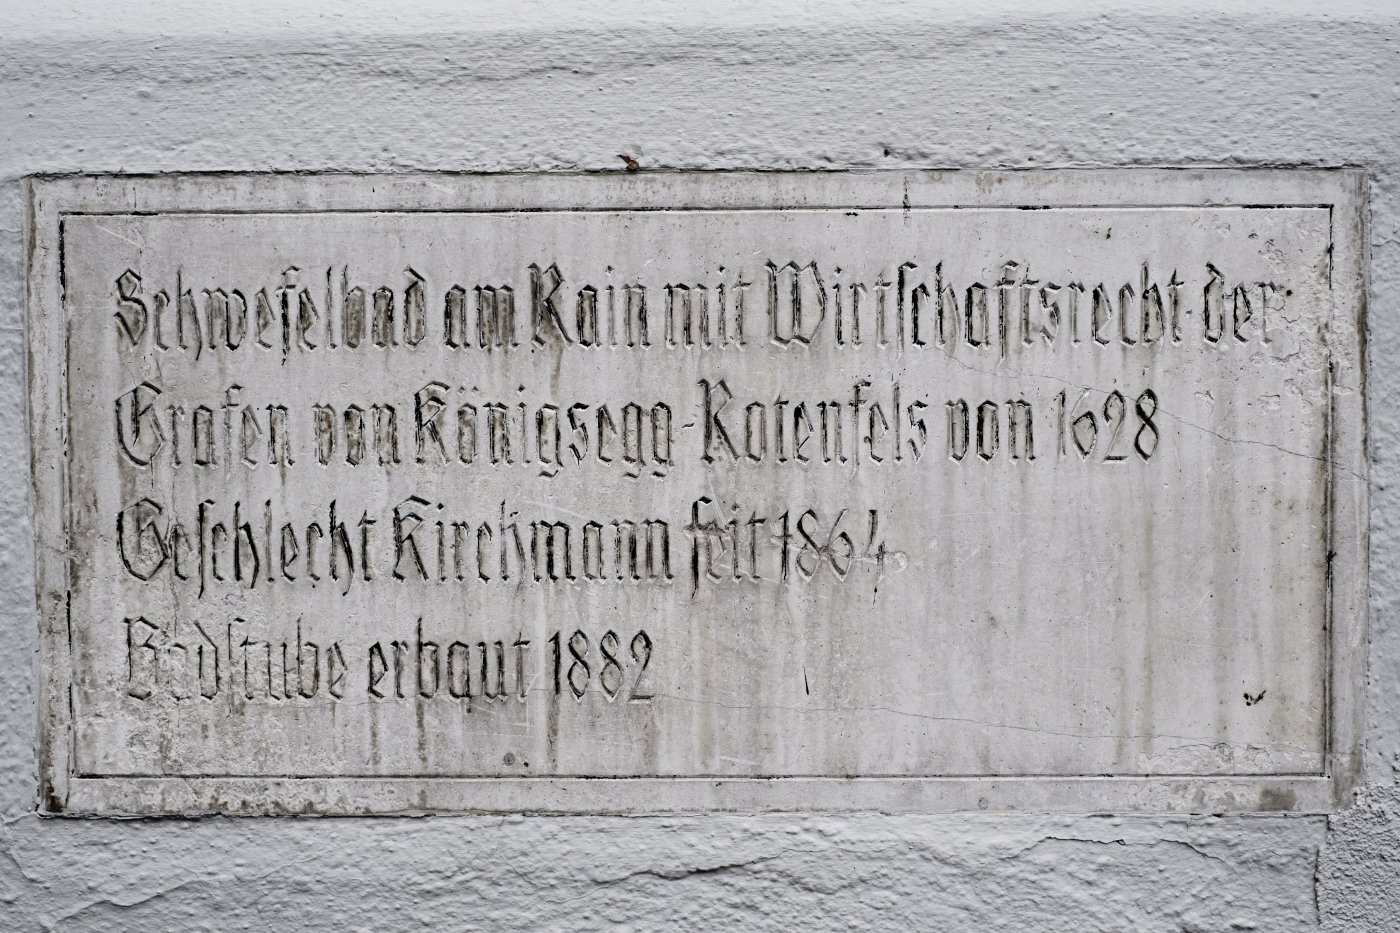 Schwefelbad am Rain mit Wirtschaftsrecht der
Grafen von Königsegg-Rotenfels von 1628
Geschlecht Kirchmann seit 1864
Badstube erbaut 1882